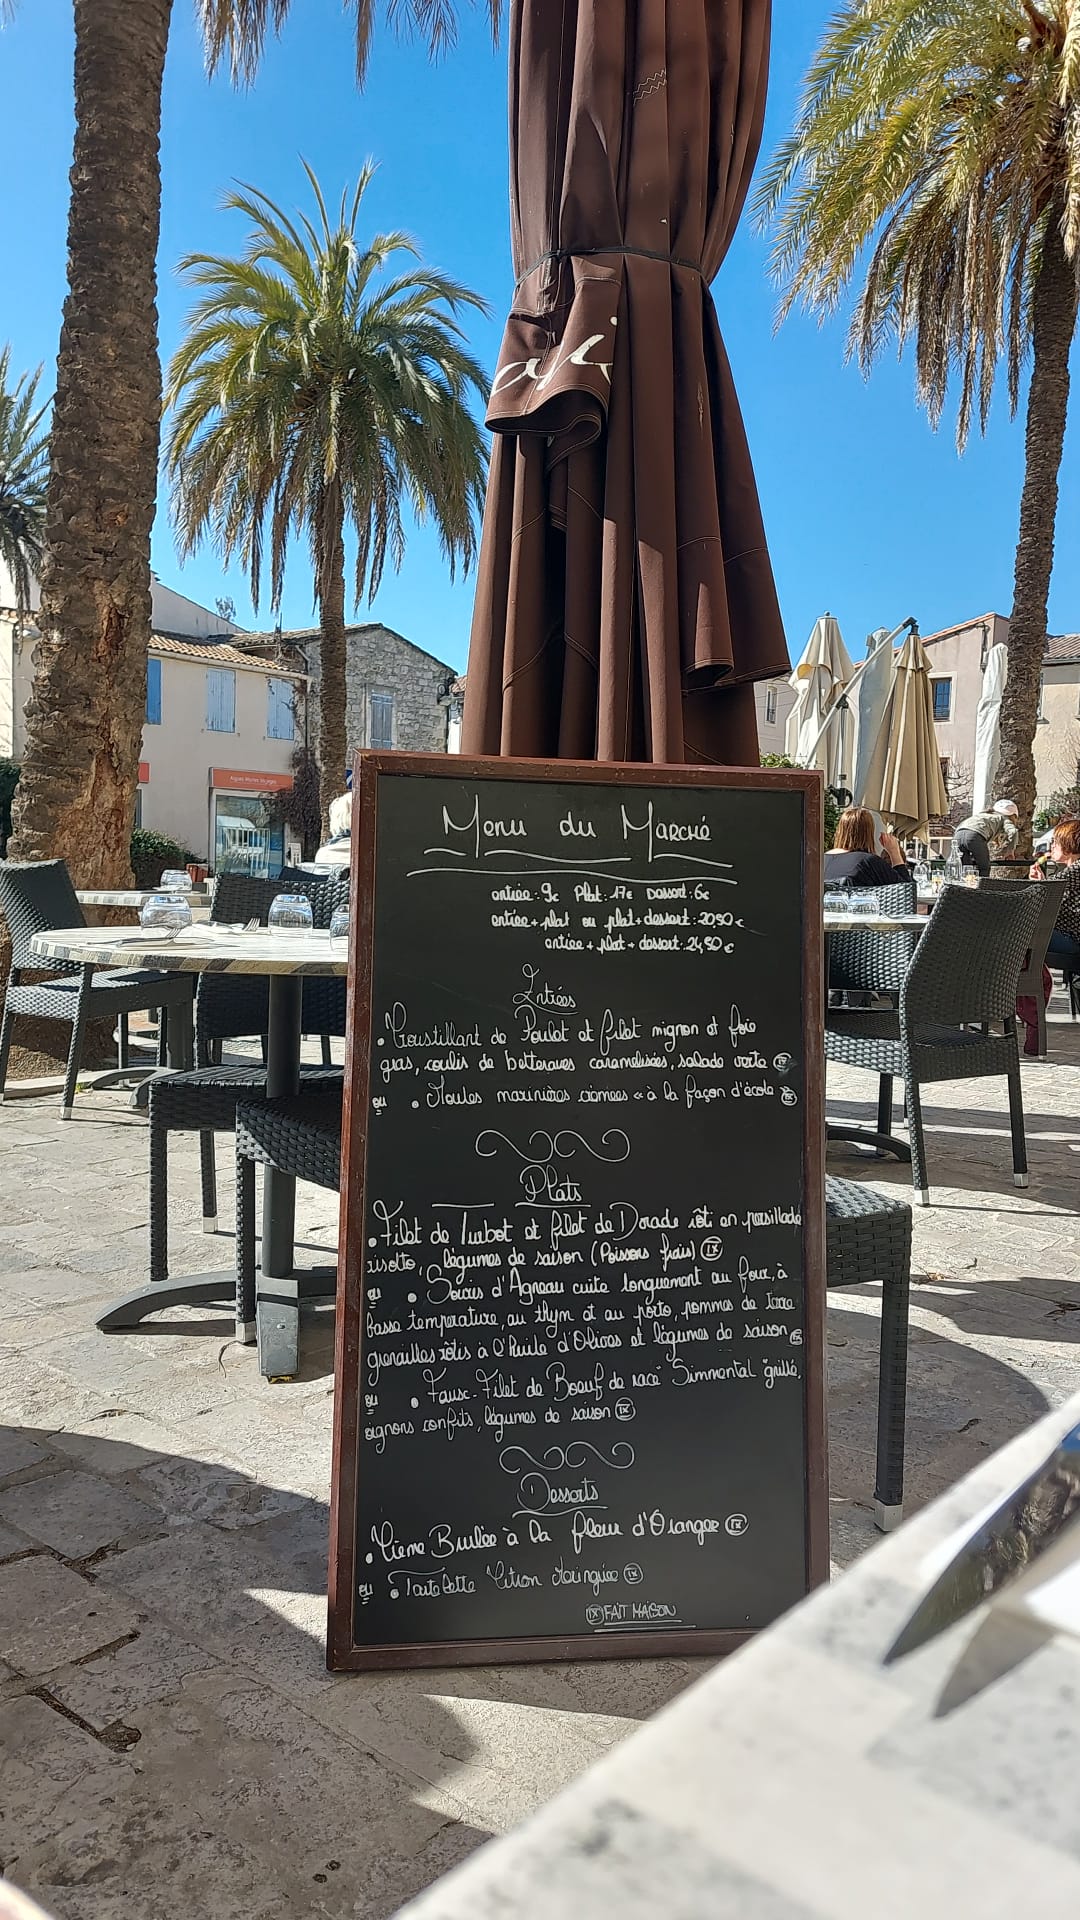 Aigues Mortes Voyages
Menu du Marché
entrée: 9€ Plat: 17€ Dessert: 6€
entrée + plat ou plat + dessert: 20,90€
entrée + plat + dessert: 24,90€
Entrées
• Croustillant de Poulet et filet mignon et foie
gras, coulis de betteraves caramelisées, salade verte
ou • Moules marinières crémées « à la façon d'école
Plats
• Filet de Turbot et filet de Dorade rôti en persillade
risotto, légumes de saison (Poissons frais)
ou • Souris d'Agneau cuite longuement au four, à
basse temperature, au thym et au porto, pommes de terre
grenailles rôtis à l'Huile d'Olives et légumes de saison
ou • Faux-Filet de Boeuf de race "Simmental" grillé,
oignons confits, légumes de saison
Desserts
• Crème Brulée à la fleur d'Oranger
ou • Tartelette Citron Meringuée
FAIT MAISON